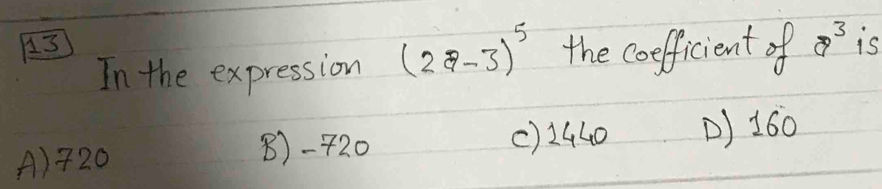 13
In the expression (2a-3)^5 the coefficient of a^3 is
A) 720 B) -720 C) 1440 D) 160